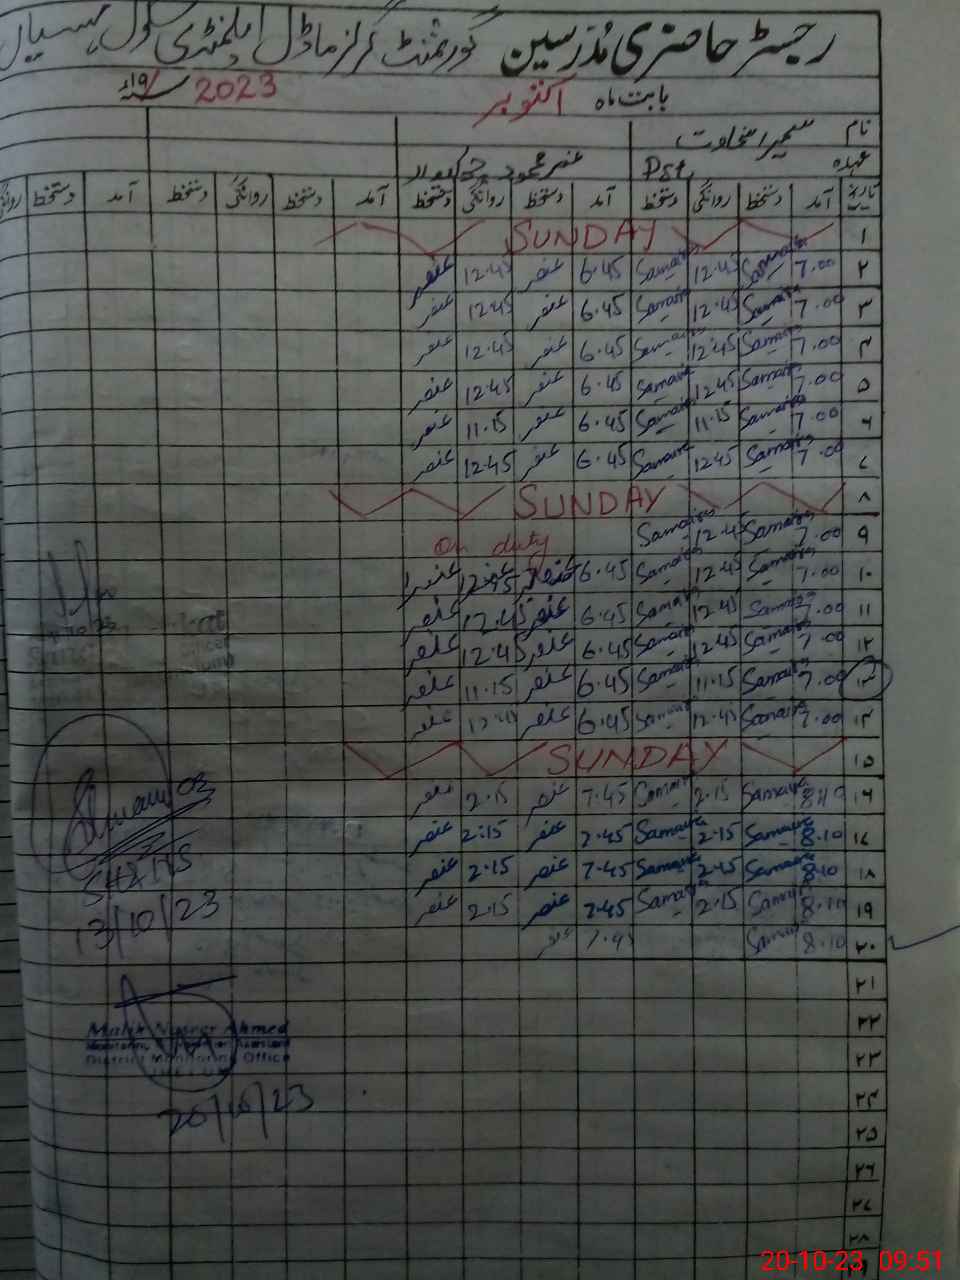 رجسٹر حاضری مُدرسین گورنمنٹ گرلز ماڈل ایلیمنٹری سکول سیال
بابت ماہ اکتوبر 2023 ۱۹ء
نام سمیرا سخاوت
عہدہ Pst, عنصر محمود چوکیدار
تاریخ آمد دستخط روانگی دستخط آمد دستخط روانگی دستخط آمد دستخط روانگی دستخط آمد دستخط روانگی
۱ SUNDAY
۲ 7.00 Samaira 12.45 Samaira 6.45 عنصر 12.45 عنصر
۳ 7.00 Samaira 12.45 Samaira 6.45 عنصر 12.45 عنصر
۴ 7.00 Samaira 12.45 Samaira 6.45 عنصر 12.45 عنصر
۵ 7.00 Samaira 12.45 Samaira 6.45 عنصر 12.45 عنصر
۶ 7.00 Samaira 11.15 Samaira 6.45 عنصر 11.15 عنصر
۷ 7.00 Samaira 12.45 Samaira 6.45 عنصر 12.45 عنصر
۸ SUNDAY
۹ 7.00 Samaira 12.45 Samaira On duty
۱۰ 7.00 Samaira 12.45 Samaira 6.45 عنصر 12.45 عنصر
۱۱ 7.00 Samaira 12.45 Samaira 6.45 عنصر 12.45 عنصر
۱۲ 7.00 Samaira 12.45 Samaira 6.45 عنصر 12.45 عنصر
۱۳ 7.00 Samaira 11.15 Samaira 6.45 عنصر 11.15 عنصر
۱۴ 7.00 Samaira 12.45 Samaira 6.45 عنصر 12.45 عنصر
۱۵ SUNDAY
۱۶ 8.10 Samaira 2.15 Samaira 7.45 عنصر 2.15 عنصر
۱۷ 8.10 Samaira 2.15 Samaira 7.45 عنصر 2:15 عنصر
۱۸ 8.10 Samaira 2.15 Samaira 7.45 عنصر 2.15 عنصر
۱۹ 8.10 Samaira 2.15 Samaira 7.45 عنصر 2.15 عنصر
۲۰ 8.10 Samaira 7.45 عنصر
13/10/23
۲۱
۲۲
Malik Ahmed
۲۳
District Monitoring Office
۲۴
20/10/23
۲۵
۲۶
۲۷
۲۸
20-10-23 09:51